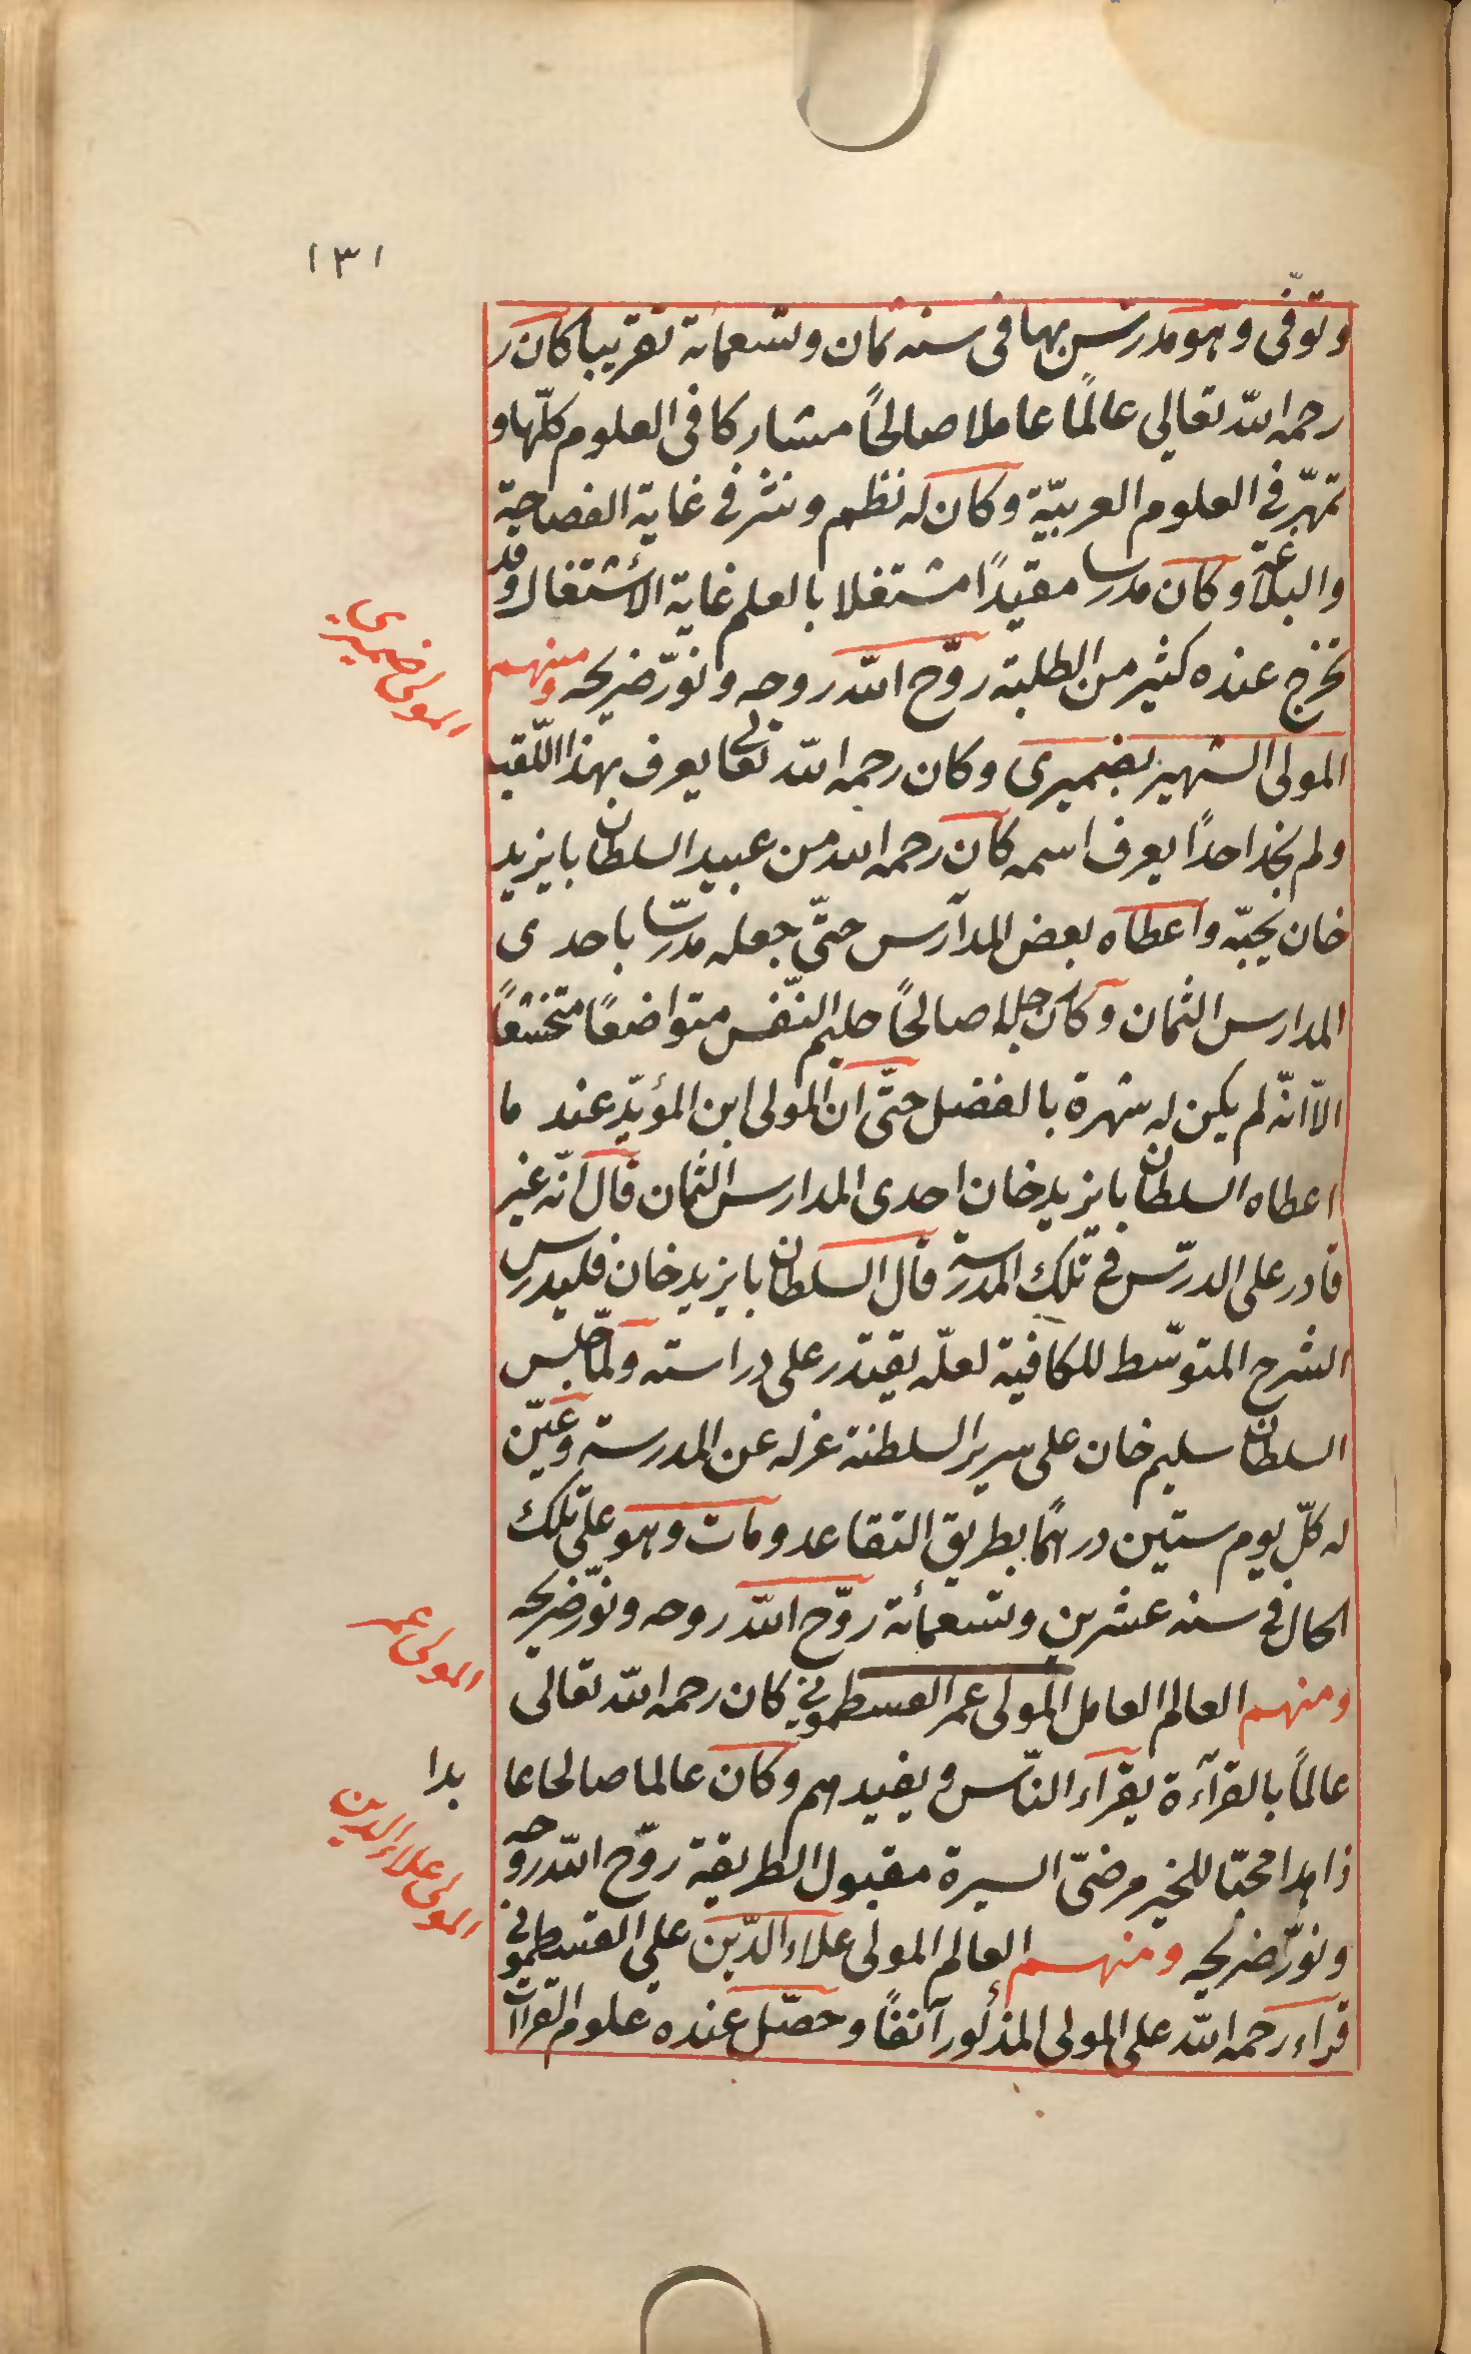 ١٣١
وتوفّى وهو مدرّس بها فى سنه ثمان وتسعمائة تقريبا كان ر
رحمه الله تعالى عالمًا عاملا صالحًا مشاركا فى العلوم كلّها و
تمهّر في العلوم العربيّة وكان له نظم ونثر في غاية الفصاحية
والبلاغة وكان مدرسا مقيدًا مشتغلا بالعلم غاية الأشتغال وقد
تخرج عنده كثير من الطلبة روّح الله روحه ونوّر ضريحه ومنهم
المولى ضميرى
المولى الشهير بضميرى وكان رحمه الله تعالى يعرف بهذا اللّقب
ولم نجد احدًا يعرف اسمه كان رحمه الله من عبيد السلطان بايزيد
خان يحبّه واعطاه بعض المدارس حتّى جعله مدرّسا باحدى
المدارس الثمان وكان صالحًا حليم النّفس متواضعًا متخشعًا
الاّ انّه لم يكن له شهرة بالفضل حتّى ان المولى ابن المؤيّد عند ما
اعطاه السلطان بايزيد خان احدى المدارس الثمان قال انّه غير
قادر على الدرّس في تلك المدرسة قال السلطان بايزيد خان فليدرس
الشرح المتوسّط للكافية لعلّه يقتدر على دراسته ولمّا جلس
السلطان سليم خان على سرير السلطنة عزله عن المدرسة وعيّن
له كلّ يوم ستين درهمًا بطريق التقاعد ومات وهو على تلك
الحال في سنه عشرين وتسعمأئة روّح الله روحه ونوّر ضريحه
المولى عمر
ومنهم العالم العامل المولى عمر القسطمونى كان رحمه الله تعالى
عالمًا بالقرآءة يقرآء النّاس ويفيدهم وكان عالما صالحا عا
بدا
زاهدا محبّا للخير مرضىّ السيرة مقبول الطريقة روّح الله روحه
المولى علاء الدين
ونوّر ضريحه ومنهم العالم المولى علاء الدّين على القسطمونى
قراء رحمه الله على المولى المذكور آنفًا وحصّل عنده علوم القرآت